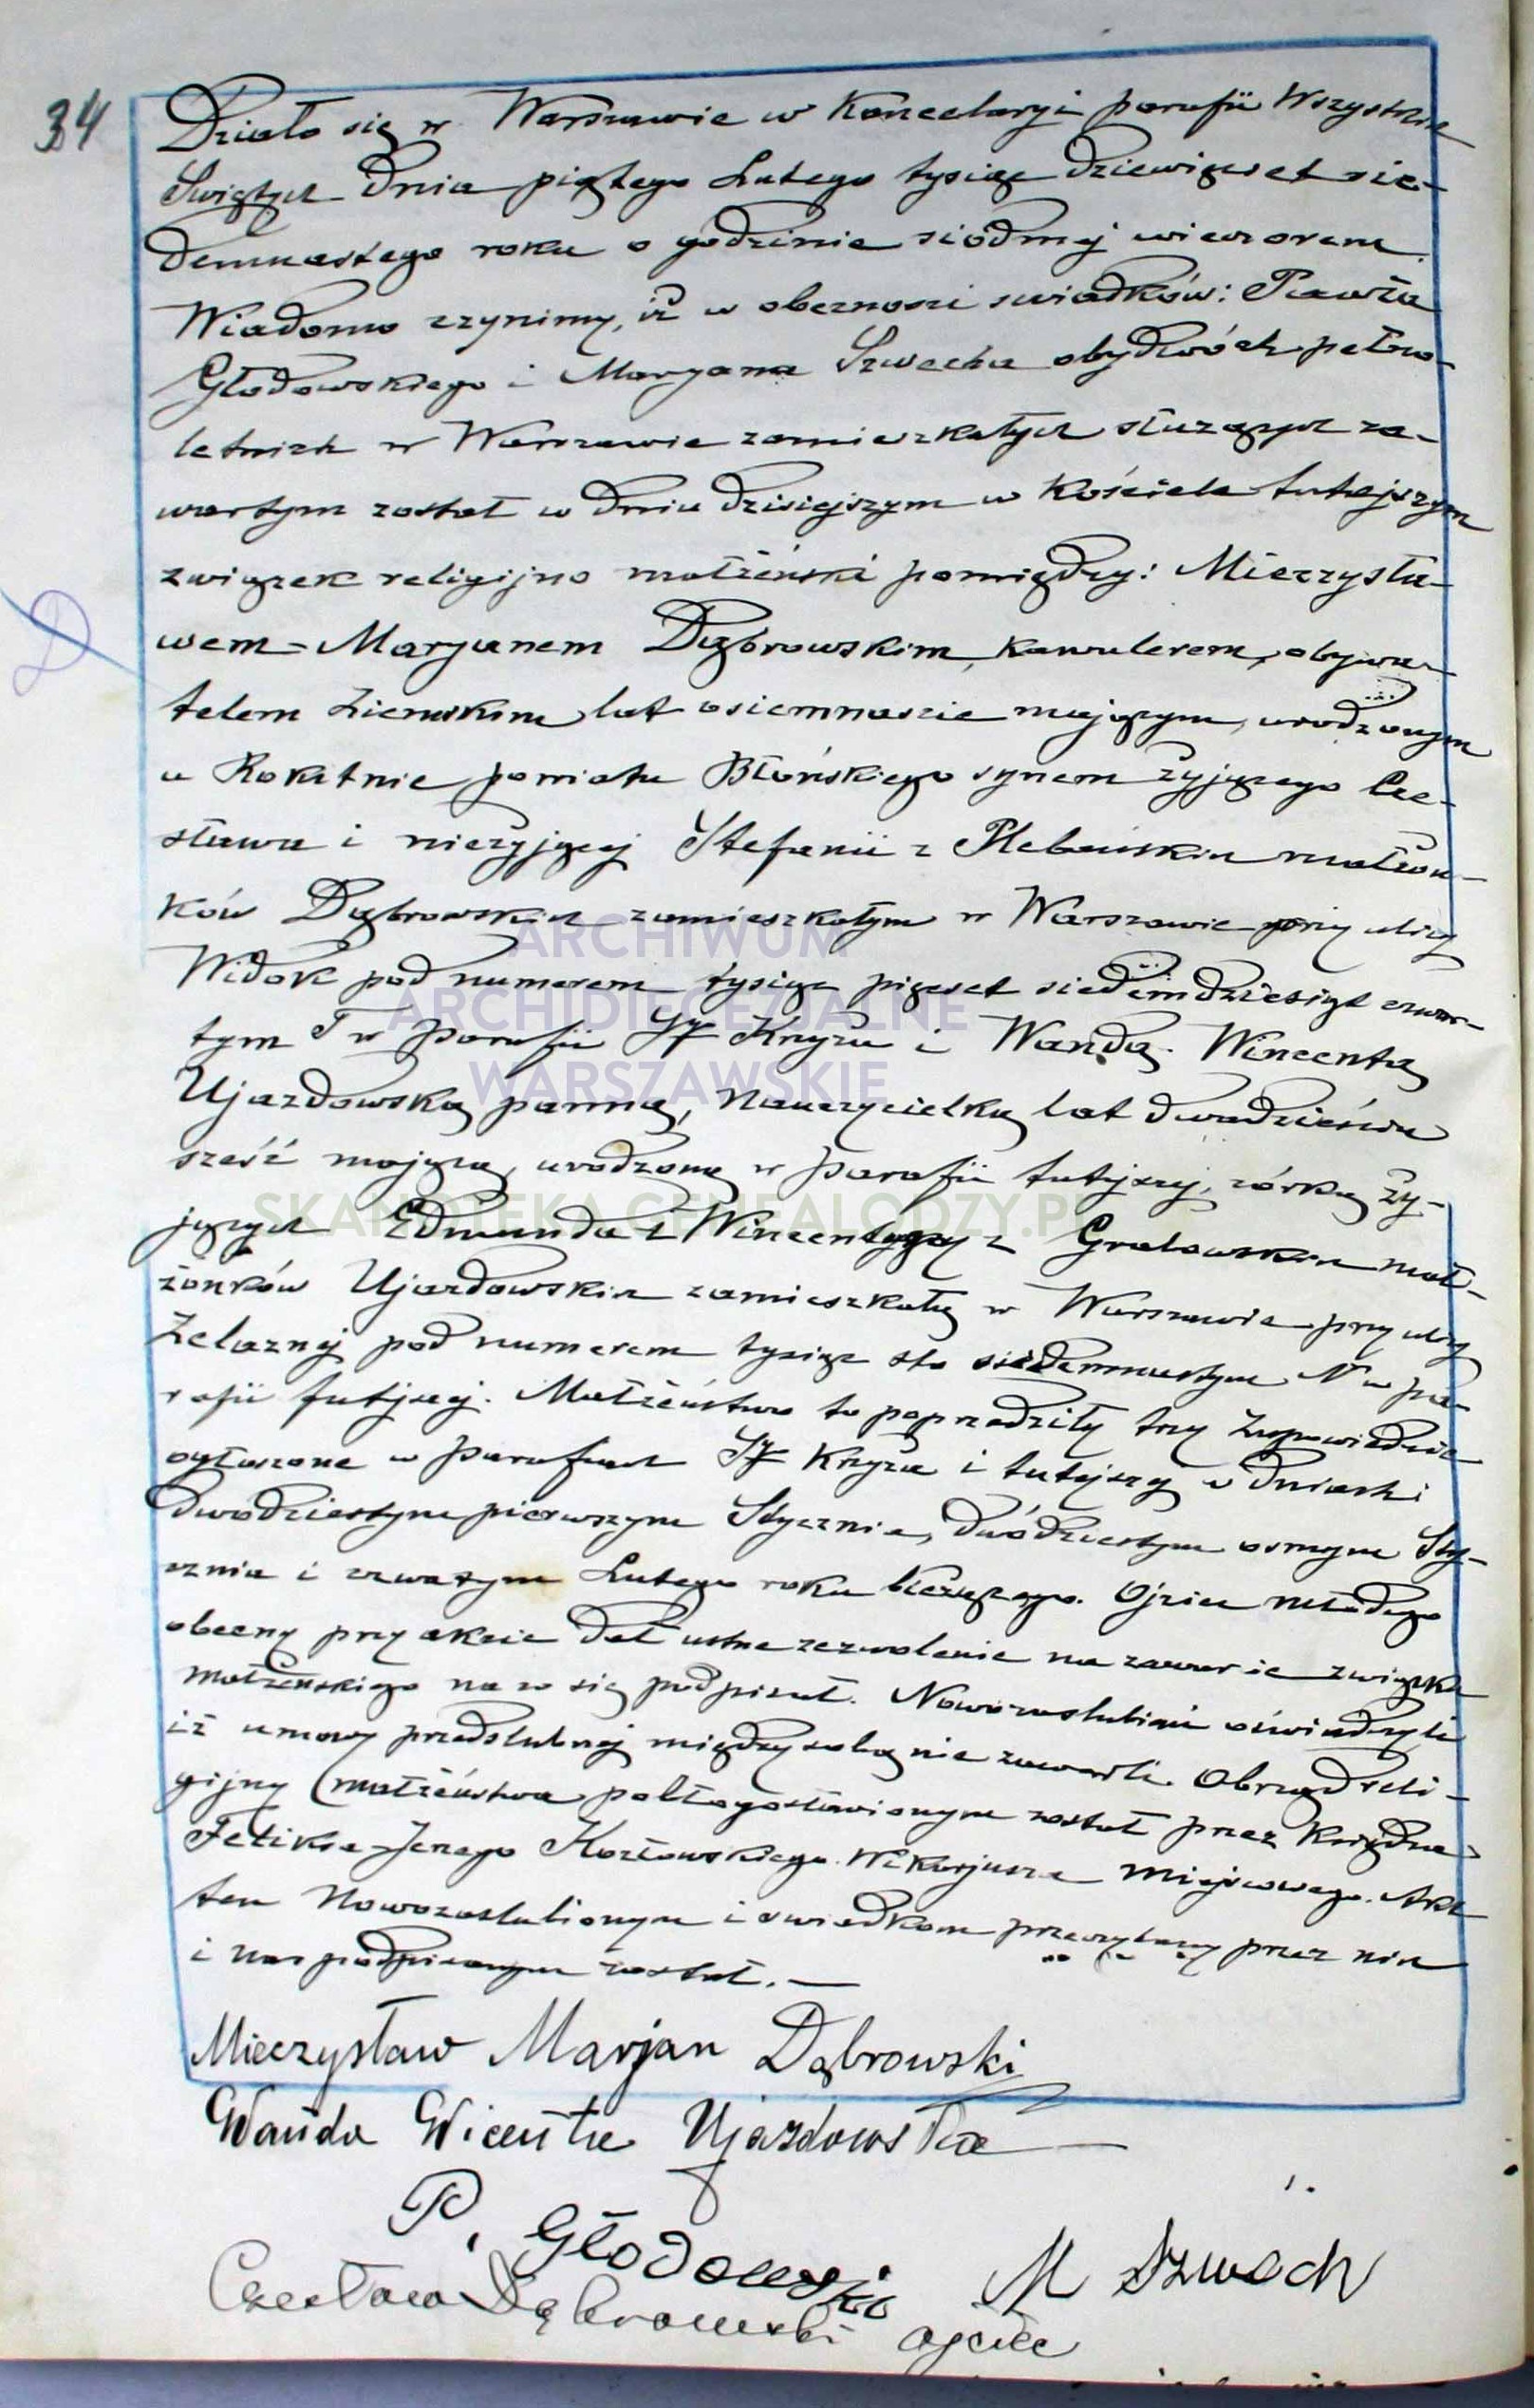 34
Działo się w Warszawie w Kancelaryi parafii Wszystkich
Świętych dnia piątego Lutego tysiąc dziewięćset sie-
demnastego roku o godzinie siódmej wieczorem.
Wiadomo czynimy, iż w obecnosci swiadków: Pawła
Głodowskiego i Maryana Szwecha obydwóch pełno-
letnich w Warszawie zamieszkałych służących za-
wartym został w dniu dzisiejszym w Kościele tutejszym
związek religijno małżeński pomiędzy: Mieczysła-
wem-Maryanem Dąbrowskim, kawalerem, obywa-
telem Ziemskim lat osiemnaście mającym, urodzonym
w Rokitnie powiatu Błońskiego synem żyjącego Cze-
sława i nieżyjącej Stefanii z Plebańskich małżon-
ków Dąbrowskich zamieszkałym w Warszawie przy ulicy
Widok pod numerem tysiąc pięćset siedemdziesiąt czwar-
tym T w Parafii Sgo Krzyża i Wandą Wincentą
Ujazdowską panną, Nauczycielką lat dwadzieścia
sześć mającą, urodzoną w Parafii tutejszej, córką ży-
jących Edmunda i Wincentyny z Grabowskich mał-
żonków Ujazdowskich zamieszkałą w Warszawie przy ulicy
Żelaznej pod numerem tysiąc sto siedemnastym N w pa-
rafii tutejszej. Małżeństwo to poprzedziły trzy Zapowiedzie
ogłoszone w Parafiach Sgo Krzyża i tutejszej w dniach:
dwudziestym pierwszym Stycznia, dwódziestym osmym Sty-
cznia i czwartym Lutego roku bieżącego. Ojciec młodego
obecny przy akcie dał ustne zezwolenie na zawarcie związku
małżenskiego na co się podpisał. Nowozaslubieni oświadczyli
iż umowy przedslubnej między sobą nie zawarli. Obrzęd reli-
gijny małżeństwa pobłogosławionym został przez Księdza
Feliksa-Jerzego Kozłowskiego Wikarjusza Miejscowego. Akt
ten Nowozaslubionym i swiadkom przeczytany przez nich
i Nas podpisanym został. —
Mieczysław Marjan Dąbrowski
Wanda Wicenta Ujazdowska
P. Głodowski M Szwech
Czesław Dąbrowski ojciec
ARCHIWUM
ARCHIDIECEZJALNE
WARSZAWSKIE
SKANOTEKA.GENEALODZY.PL